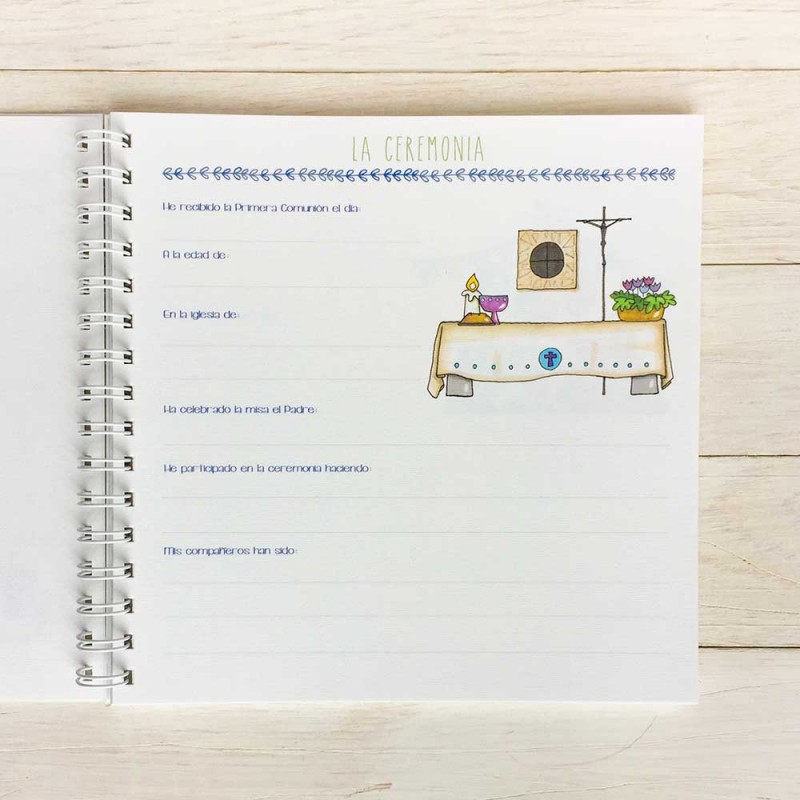 LA CEREMONIA
He recibido la Primera Comunión el día:
A la edad de:
En la iglesia de:
Ha celebrado la misa el Padre:
He participado en la ceremonia haciendo:
Mis compañeros han sido: